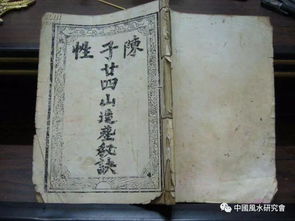 陳子性
廿四山造塟秘訣
中國風水研究會